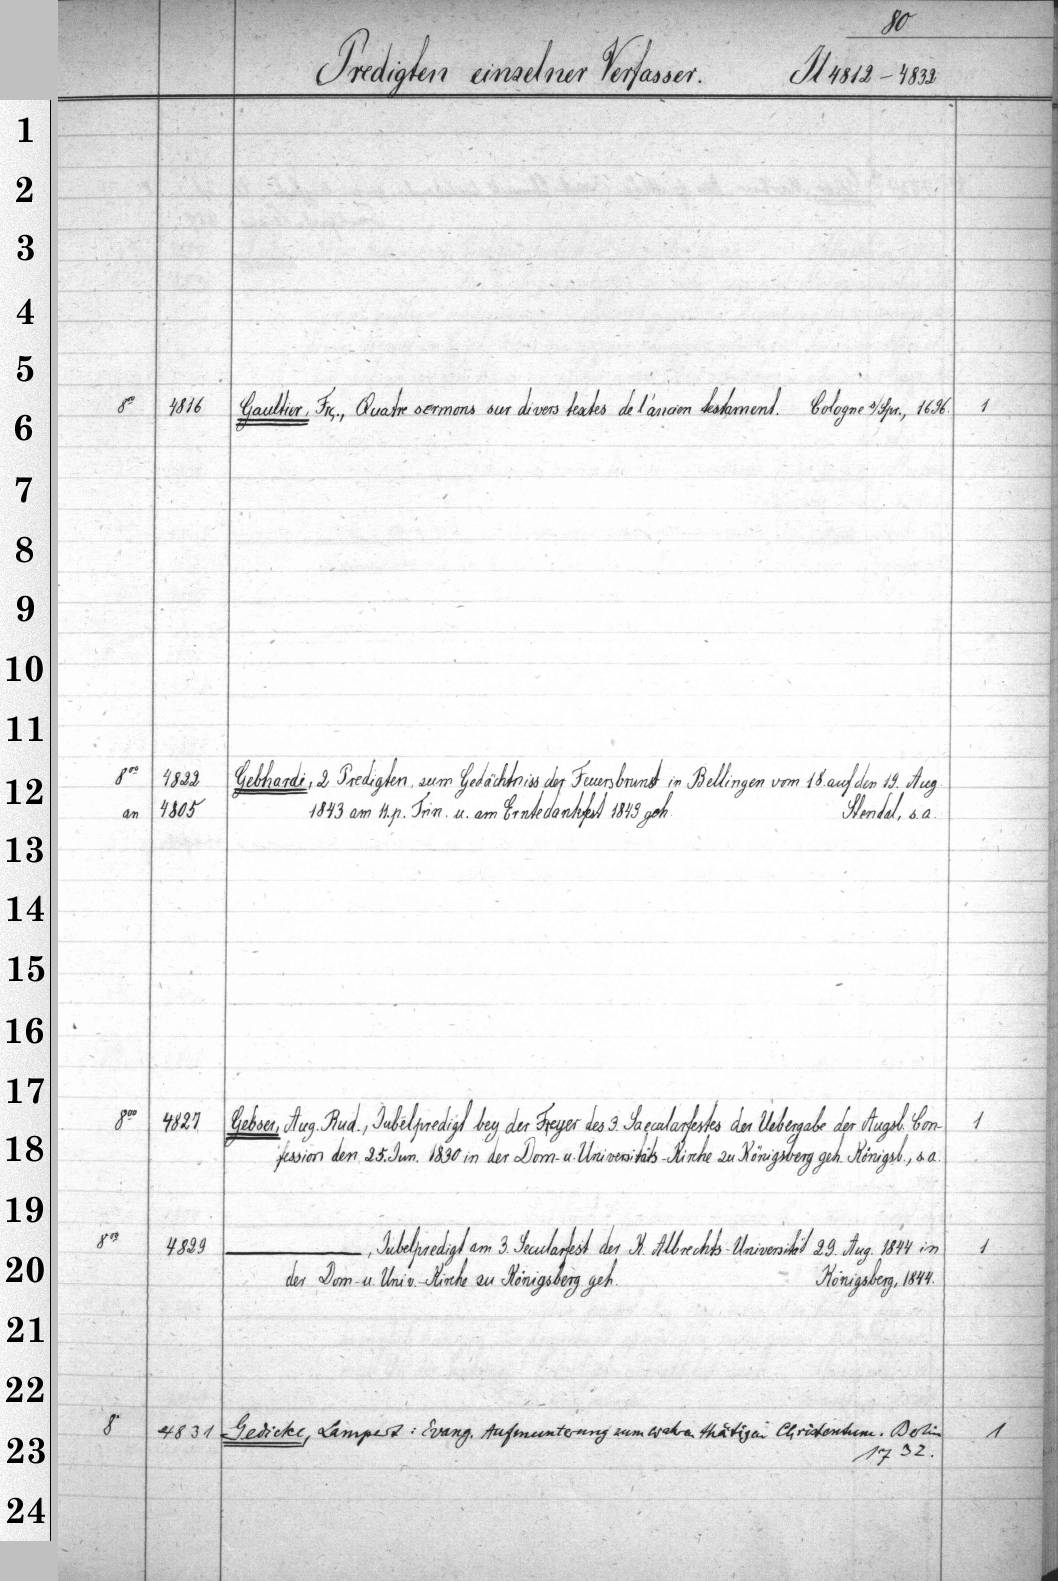 80
Predigten einzelner Verfasser. Jl 4812 – 4832
1
2
3
4
5
8° 4816 Gaultier, Frç., Quatre sermons sur divers textes de l'ancien testament. Cologne a/Spr., 1696. 1
6
7
8
9
10
11
8vo 4822 Gebhardi, 2 Predigten, zum Gedächtniss der Feuersbrunst in Bellingen vom 18. auf den 19. Aug.
12
an 4805 1843 am 11. p. Trin. u. am Erntedankfest 1843 geh. Stendal, s. a.
13
14
15
16
17
4827 Gebser, Aug. Rud., Jubelpredigt bey der Freyer des 3. Saecularfestes der Uebergabe der Augsb. Con-
1
18
fession den 25. Jun. 1830 in der Dom- u. Universitäts-Kirche zu Königsberg geh. Königsb., s. a.
19
4829 , Jubelpredigt am 3. Secularfest der K. Albrechts-Universität 29. Aug. 1844 in 1
20
der Dom- u. Univ.-Kirche zu Königsberg geh. Königsberg, 1844.
21
22
8° 4831 Gedicke, Lampert: Evang. Aufmunterung zum wahren thätigen Christentum. Berlin 1
23
1732.
24